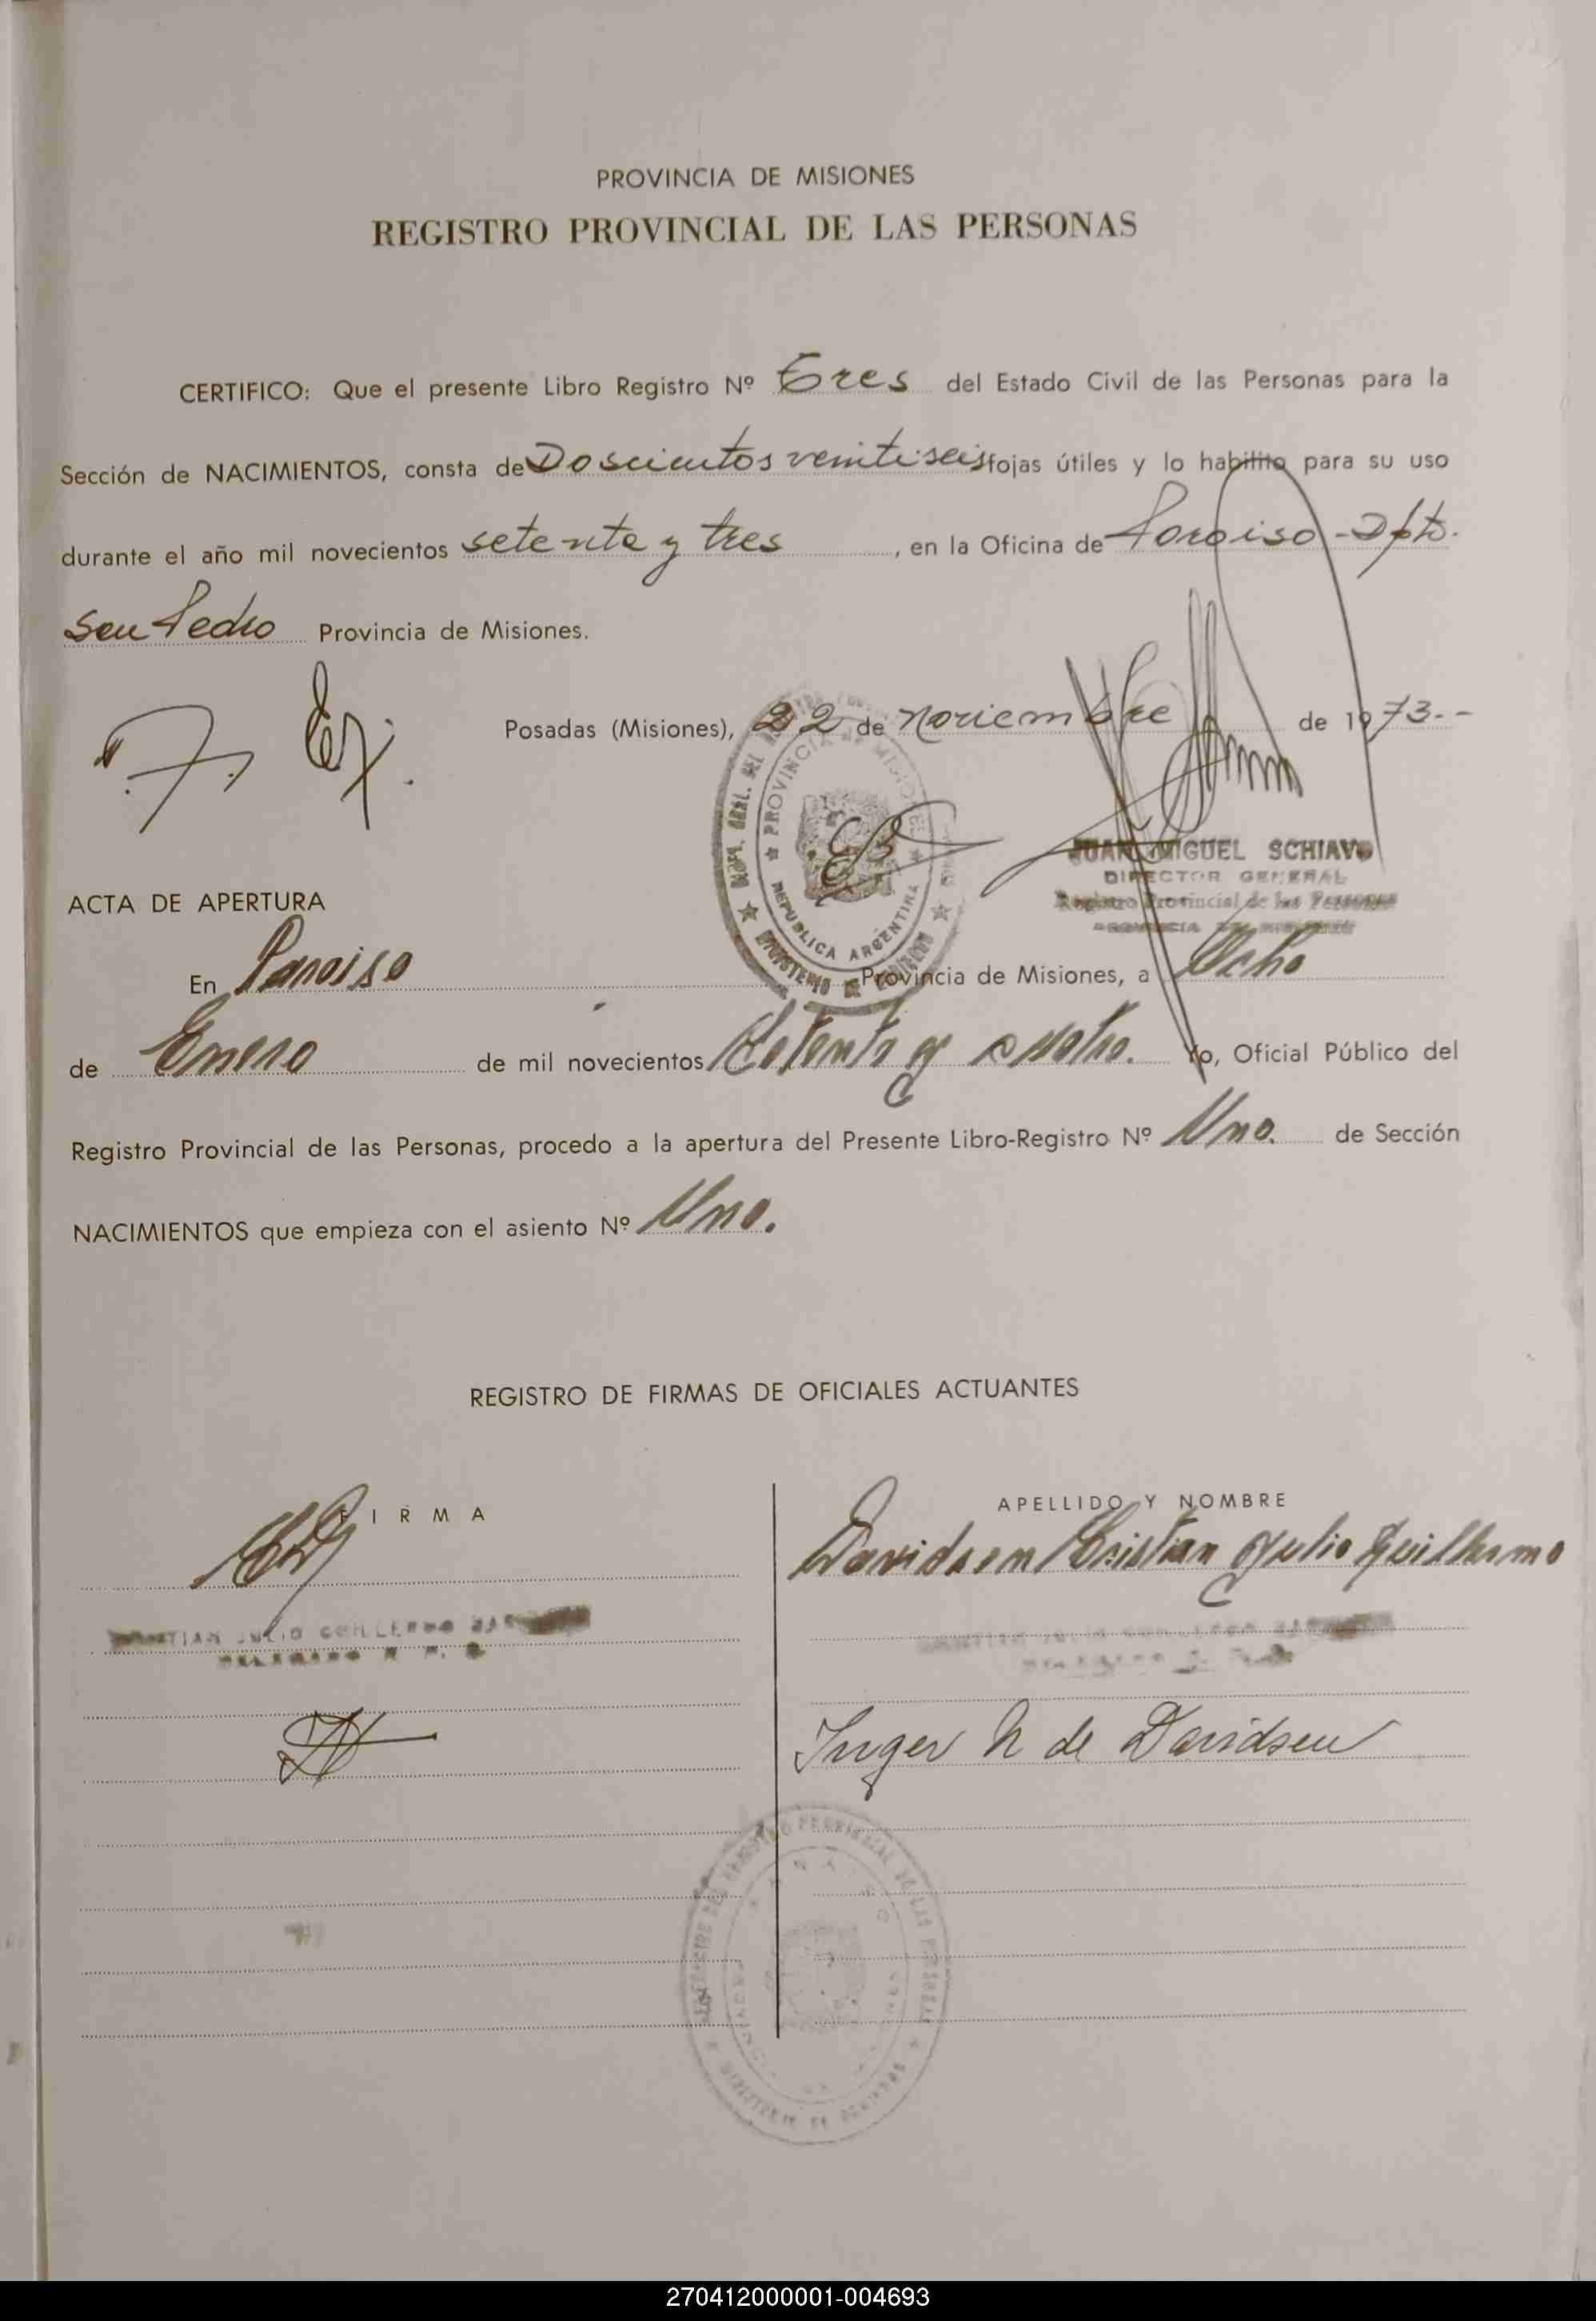 PROVINCIA DE MISIONES
REGISTRO PROVINCIAL DE LAS PERSONAS
CERTIFICO: Que el presente Libro Registro Nº Tres del Estado Civil de las Personas para la
Sección de NACIMIENTOS, consta de Doscientos veinti seis fojas útiles y lo habilito para su uso
durante el año mil novecientos setenta y tres, en la Oficina de Paraiso - Dpto.
San Pedro Provincia de Misiones.
Posadas (Misiones), 22 de Noviembre de 1973.--
PROVINCIA DE MISIONES
REPUBLICA ARGENTINA
JUAN MIGUEL SCHIAVO
DIRECTOR GENERAL
Registro Provincial de las Personas
PROVINCIA DE MISIONES
ACTA DE APERTURA
En Paraiso Provincia de Misiones, a Ocho
de Enero de mil novecientos Setenta y cuatro. Yo, Oficial Público del
Registro Provincial de las Personas, procedo a la apertura del Presente Libro-Registro Nº Uno. de Sección
NACIMIENTOS que empieza con el asiento Nº Uno.
REGISTRO DE FIRMAS DE OFICIALES ACTUANTES
FIRMA
APELLIDO Y NOMBRE
Davidsen Cristian Julio Guillermo
CRISTIAN JULIO GUILLERMO
Inger N de Davidsen
270412000001-004693